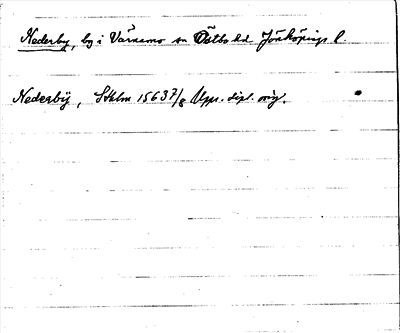 Nederby, by i Värnamo sn Östbo hd. Jönköpings l.
Nederbÿ, Sthlm 1563 7/8 Upps. dipl. orig.